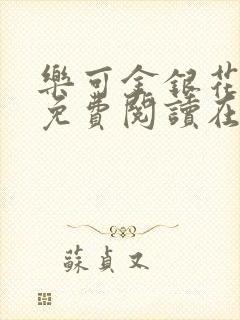 樂可金銀花
免費閱讀在
蘇貞又